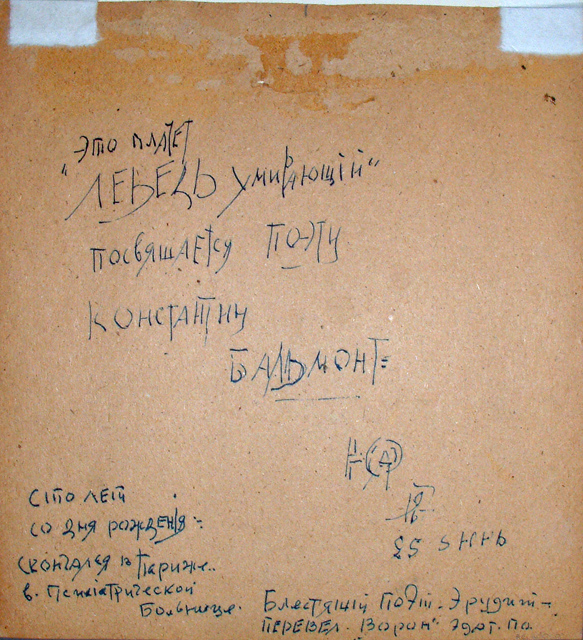 "Это плачет
Лебедь умирающий"
посвящается Поэту
Константину
Бальмонт=
Сто лет
со дня рождения:
скончался в Париже..
в. Психiатрической
Больнице.
Блестящiй Поэт. Эрудит-
перевел. Ворон" Эдг. По